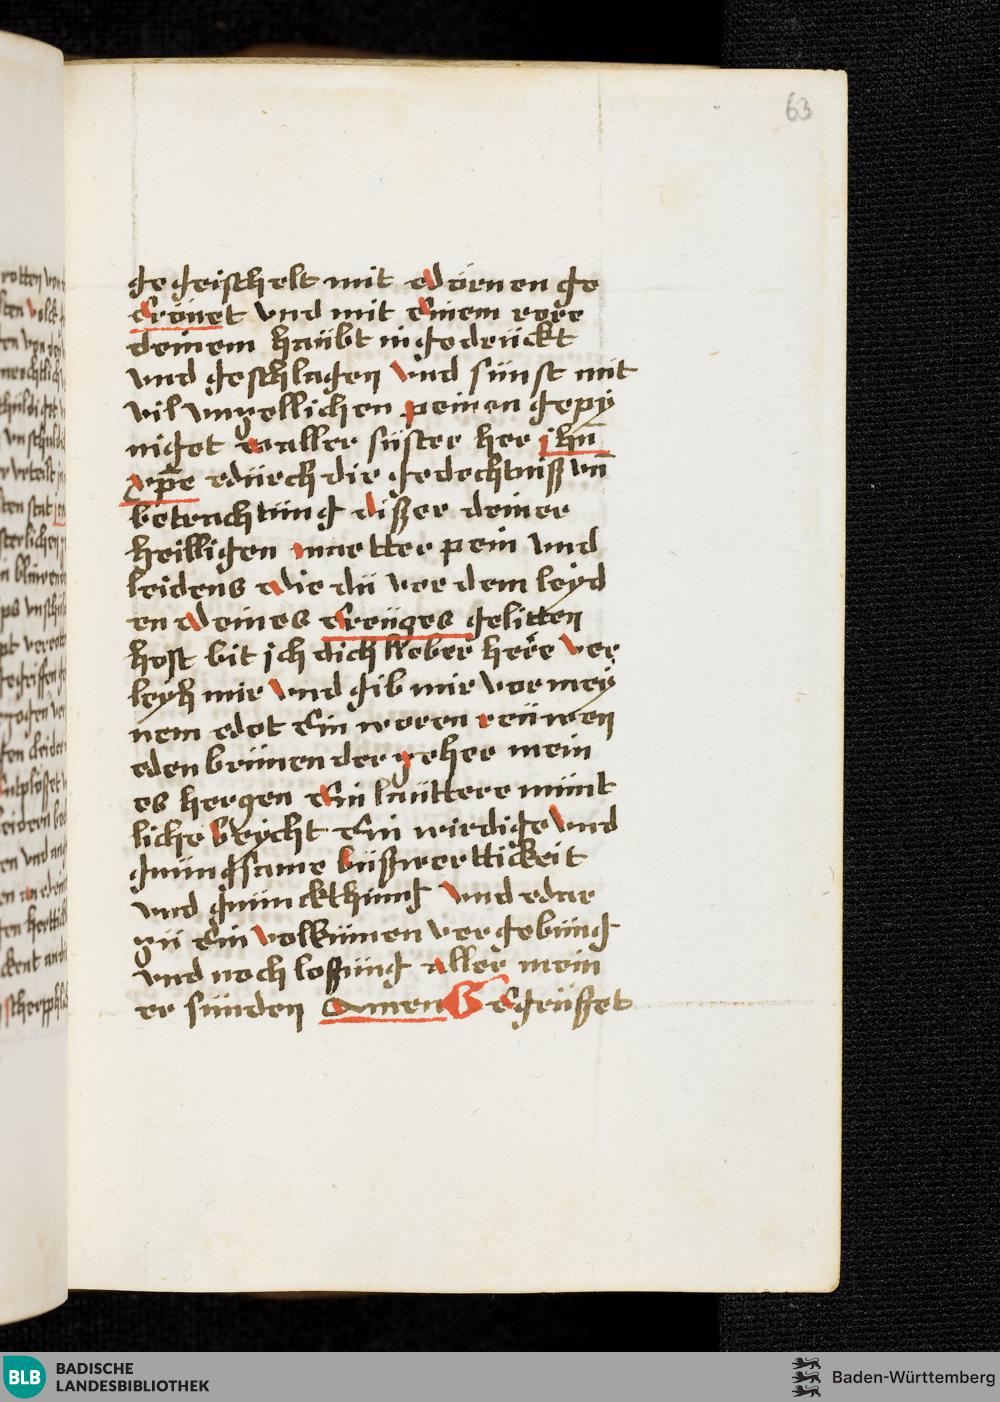 63
ge geischelt mit dörnen ge
krönet vnd mit einem rore
deinem haübt in gedrückt
vnd geschlagen vnd sünst mit
vil vnzellichen peinen gepy
niget o aller süster her jhū
xp̄e dürch die gedechtniß vn̄
betrachtüng dißer deiner
heilligen marter pein vnd
leidens die dü vor dem leyd
en deines kreüzes gelitten
host bit ich dich lieber herre ver
leyh mir vnd gib mir vor mey
nem dot ein woren reüwen
den brünen der zeher mein
es herzen ein laüttere münt
liche beycht ein wirdige vnd
gnüngsame büßwerttickeit
vnd gnünckthüng vnd dar
zü ein volkümen vergebüng
vnd noch lossüng aller mein
er sünden Amen Gegrüsset
BLB
BADISCHE
LANDESBIBLIOTHEK
Baden-Württemberg